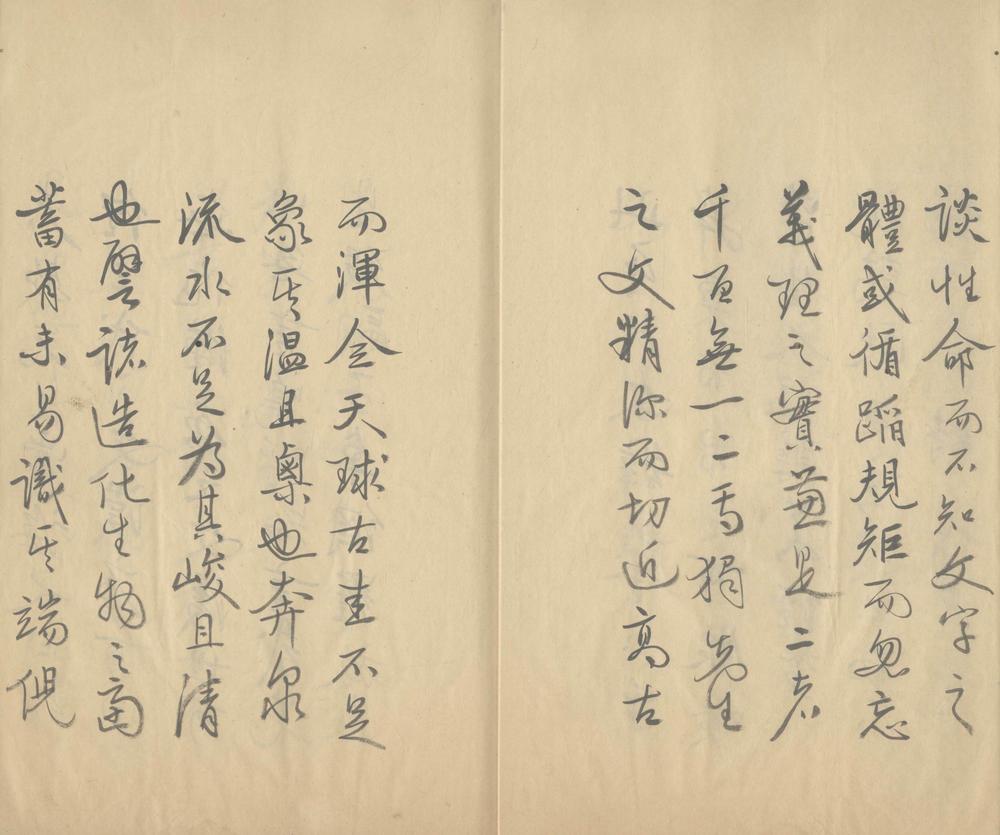 談性命而不知文字之
體或循蹈規矩而忽忘
義理之實兼是二者
千百無一二焉獨先生
之文精深而切近高古
而渾全天球古圭不足
象其温且奧也奔泉
流水不足為其峻且清
也譬諸造化生物之富
蓄有未易識其端倪